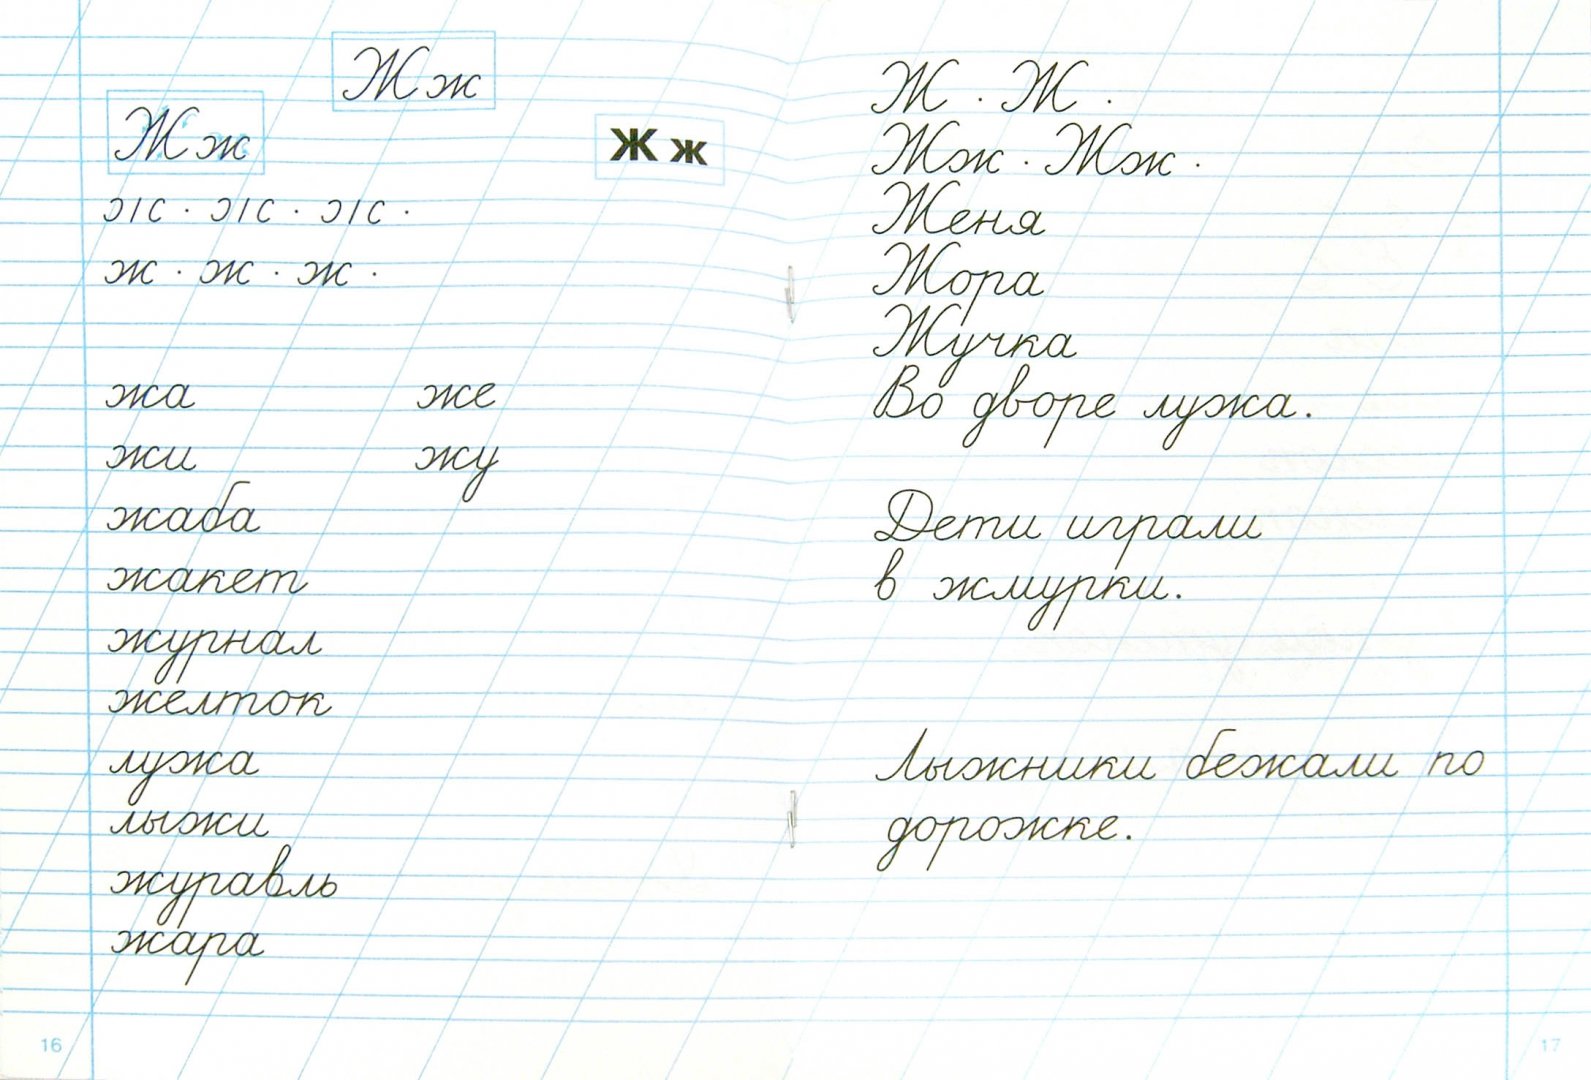 Жж
Жж
Жж
ж · ж · ж ·
жа же
жи жу
жаба
жакет
журнал
желток
лужа
лыжи
журавль
жара
16
Ж · Ж ·
Жж · Жж ·
Женя
Жора
Жучка
Во дворе лужа.
Дети играли
в жмурки.
Лыжники бежали по
дорожке.
17